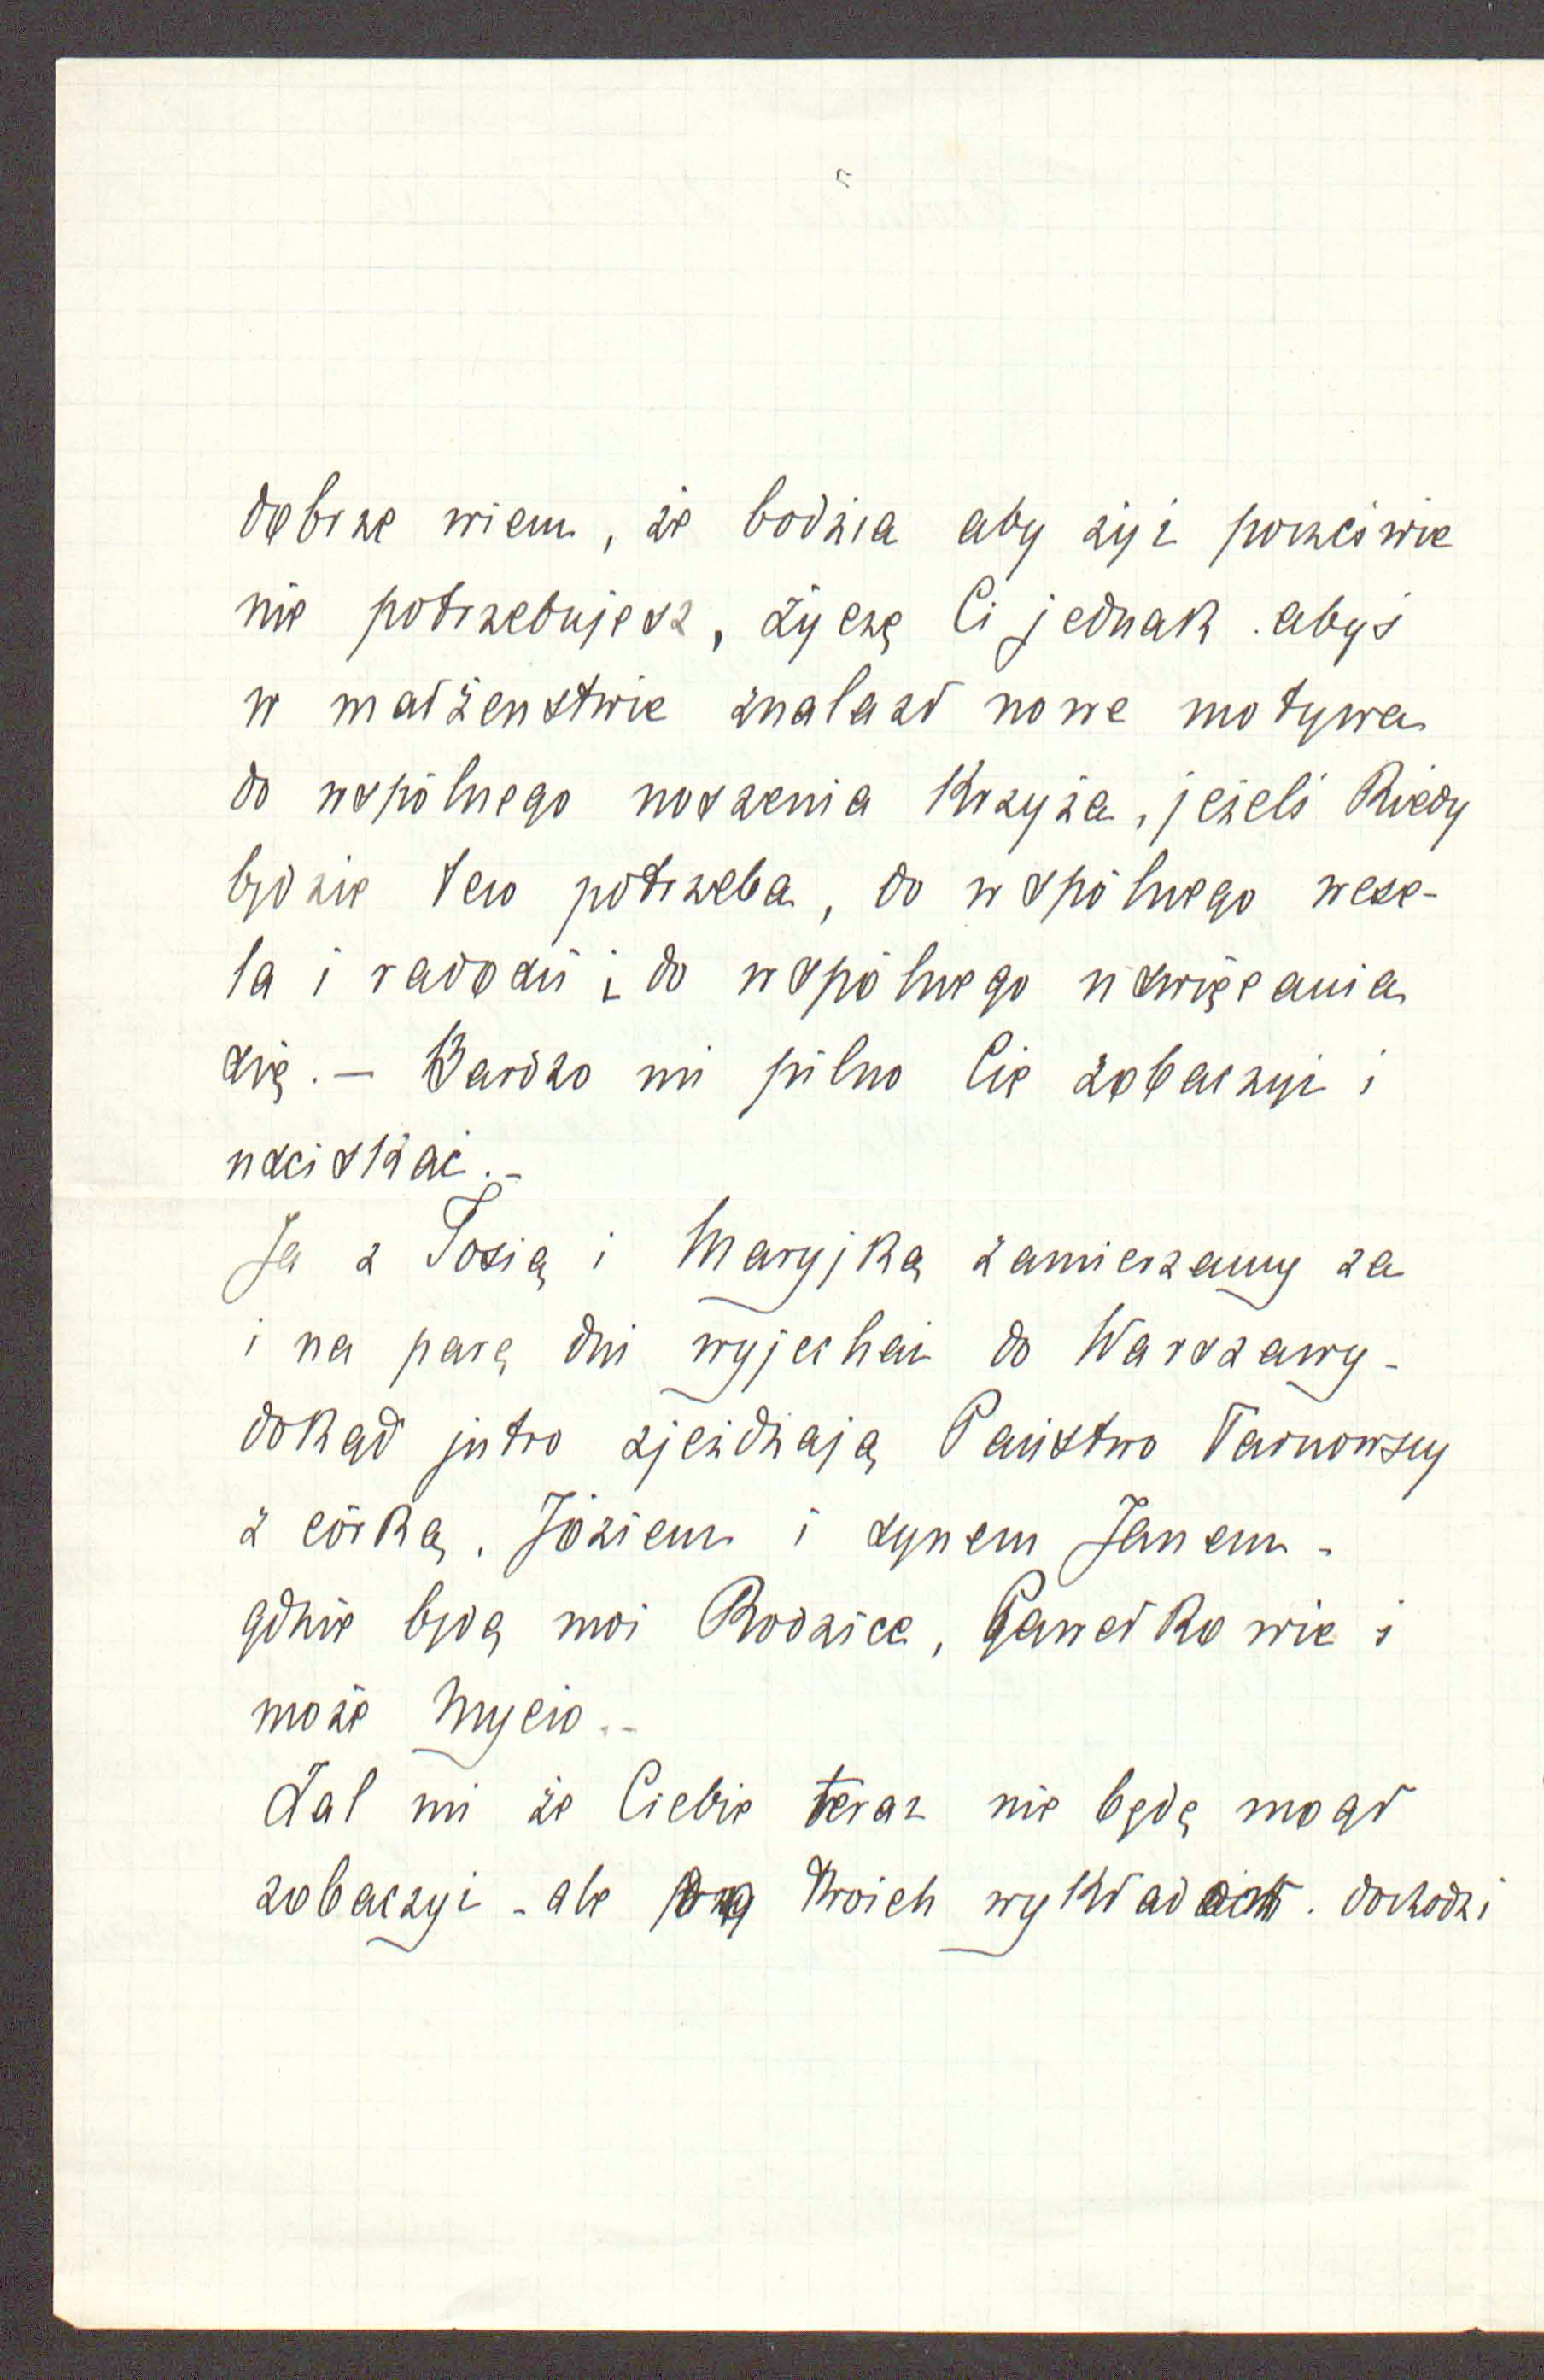 dobrze wiem, że bodźca aby żyć poczciwie
nie potrzebujesz, życzę Ci jednak . abyś
w małżenstwie znalazł nowe motywa
do wspólnego noszenia Krzyża, jeżeli kiedy
będzie tego potrzeba, do wspólnego wese-
la i radości i do wspólnego uswięcania
się. — Bardzo mi pilno Cie zobaczyć i
uściskać. -
Ja z Tosią i Maryjką zamierzamy za
i na parę dni wyjechać do Warszawy -
dokąd jutro zjeżdżają Państwo Tarnowscy
z córką, Józiem i synem Janem -
gdzie będą moi Rodzice, Gawełkowie i
może Mycio. -
Żal mi że Ciebie teraz nie będę mógł
zobaczyć - ale Twoich dochodzi